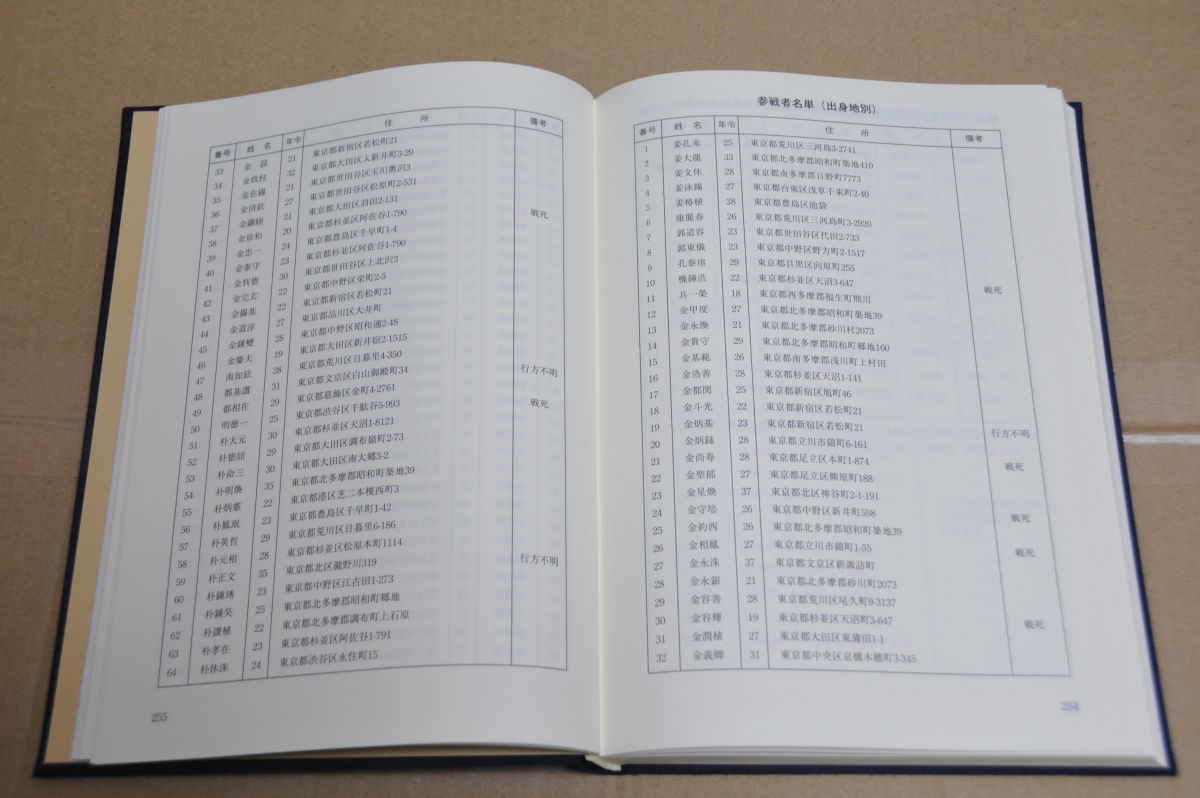 参戦者名単（出身地別）
番号 姓名 年令 住所 備考
1 姜孔来 25 東京都荒川区三河島3-2741
2 姜大龍 33 東京都北多摩郡昭和町築地410
3 姜文休 28 東京都南多摩郡日野町7773
4 姜泳錫 27 東京都台東区浅草千束町2-40
5 姜椿植 28 東京都豊島区池袋
6 康麗春 26 東京都荒川区三河島町3-2920
7 郭道容 23 東京都世田谷区代田2-733
8 郭東儀 23 東京都中野区野方町2-1517
9 孔泰瑢 29 東京都目黒区向原町255
10 権鍾浩 22 東京都杉並区天沼3-647 戦死
11 具一榮 18 東京都西多摩郡福生町熊川
12 金甲度 27 東京都北多摩郡昭和町築地39
13 金永煥 21 東京都北多摩郡砂川村2073
14 金貴守 29 東京都北多摩郡昭和町郷地160
15 金基範 26 東京都南多摩郡浅川町上村田
16 金洛善 28 東京都杉並区天沼1-141
17 金都閏 25 東京都新宿区旭町46
18 金斗光 22 東京都新宿区若松町21
19 金炳基 23 東京都新宿区若松町21 行方不明
20 金炳録 28 東京都立川市錦町6-161
21 金尚寿 28 東京都足立区本町1-874 戦死
22 金聖郁 27 東京都足立区柳原町188
23 金星煥 37 東京都北区神谷町2-1-191
24 金守培 26 東京都中野区新井町598 戦死
25 金約西 26 東京都北多摩郡昭和町築地39
26 金相鳳 27 東京都立川市錦町1-55 戦死
27 金永洙 37 東京都文京区新諏訪町
28 金永銀 21 東京都北多摩郡砂川町2073
29 金容善 28 東京都荒川区尾久町9-3137
30 金容輝 19 東京都杉並区天沼町3-647 戦死
31 金潤植 27 東京都大田区東蒲田1-1
32 金義卿 31 東京都中央区京橋木穂町3-345
254
番号 姓名 年令 住所 備考
33 金 21 東京都新宿区若松町21
34 金政柱 32 東京都大田区入新井町3-29
35 金在錫 21 東京都世田谷区玉川奥沢3
36 金洛鉉 27 東京都世田谷区松原町2-531
37 金鎭睦 21 東京都大田区羽田2-131
38 金珍和 20 東京都杉並区阿佐谷1-790 戦死
39 金忠一 24 東京都豊島区千早町1-4
40 金泰守 23 東京都杉並区阿佐谷1-790
41 金判徳 30 東京都世田谷区上北沢3
42 金完玄 22 東京都中野区栄町2-5
43 金錫基 22 東京都新宿区若松町21
44 金道淳 27 東京都品川区大井町
45 金鍾燮 28 東京都中野区昭和通2-48
46 金慶夫 19 東京都大田区新井宿2-1515
47 南知鉉 28 東京都荒川区日暮里4-350
48 都基讃 31 東京都文京区白山御殿町34 行方不明
49 都相在 29 東京都葛飾区金町4-2761
50 明徳一 25 東京都渋谷区千駄谷5-993 戦死
51 朴大元 30 東京都杉並区天沼1-8121
52 朴徳喆 29 東京都大田区調布嶺町2-73
53 朴命三 30 東京都大田区南大郷3-2
54 朴明煥 35 東京都北多摩郡昭和町築地39
55 朴炳憲 22 東京都港区芝二本榎西町3
56 朴鳳珉 23 東京都豊島区千早町1-42
57 朴英哲 29 東京都荒川区日暮里6-186
58 朴元相 28 東京都杉並区松原本町1114
59 朴正文 35 東京都北区瀧野川319 行方不明
60 朴鍾琇 23 東京都中野区江古田1-273
61 朴鍾昊 25 東京都北多摩郡昭和町郷地
62 朴讃植 22 東京都北多摩郡調布町上石原
63 朴孝在 23 東京都杉並区阿佐谷1-791
64 朴休洙 24 東京都渋谷区永住町15
255